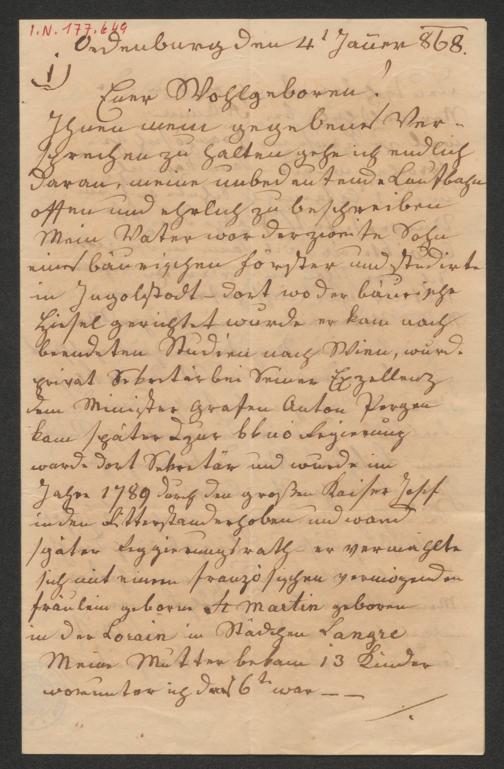 I.N. 177.649
Oedenburg den 4t Jäner 868.
1)
Euer Wohlgeboren!
Ihnen mein gegebenes Ver-
sprechen zu halten gehe ich endlich
daran, meine unbedeutende Laufbahn
offen und ehrlich zu beschreiben
Mein Vater war der zweite Sohn
eines bäurischen Förster und studirte
in Ingolstadt – dort wo der bäurische
Hiesel gerichtet wurde er kam nach
beendeten Studien nach Wien, wurde
privat Sekretär bei Seiner Exzellenz
dem Minister Grafen Anton Pergen
kam später zur Regierung
warde dort Sekretär und wurde im
Jahre 1789 durch den großen Kaiser Josef
in den Ritterstand erhoben und ward
später Regierungsrath er vermählte
sich mit einem französischen vermögenden
Fräulein geborne St Martin geboren
in der Lorain in Städchen Langre
Meine Mutter bekam 13 Kinder
worunter ich das 6te war – –